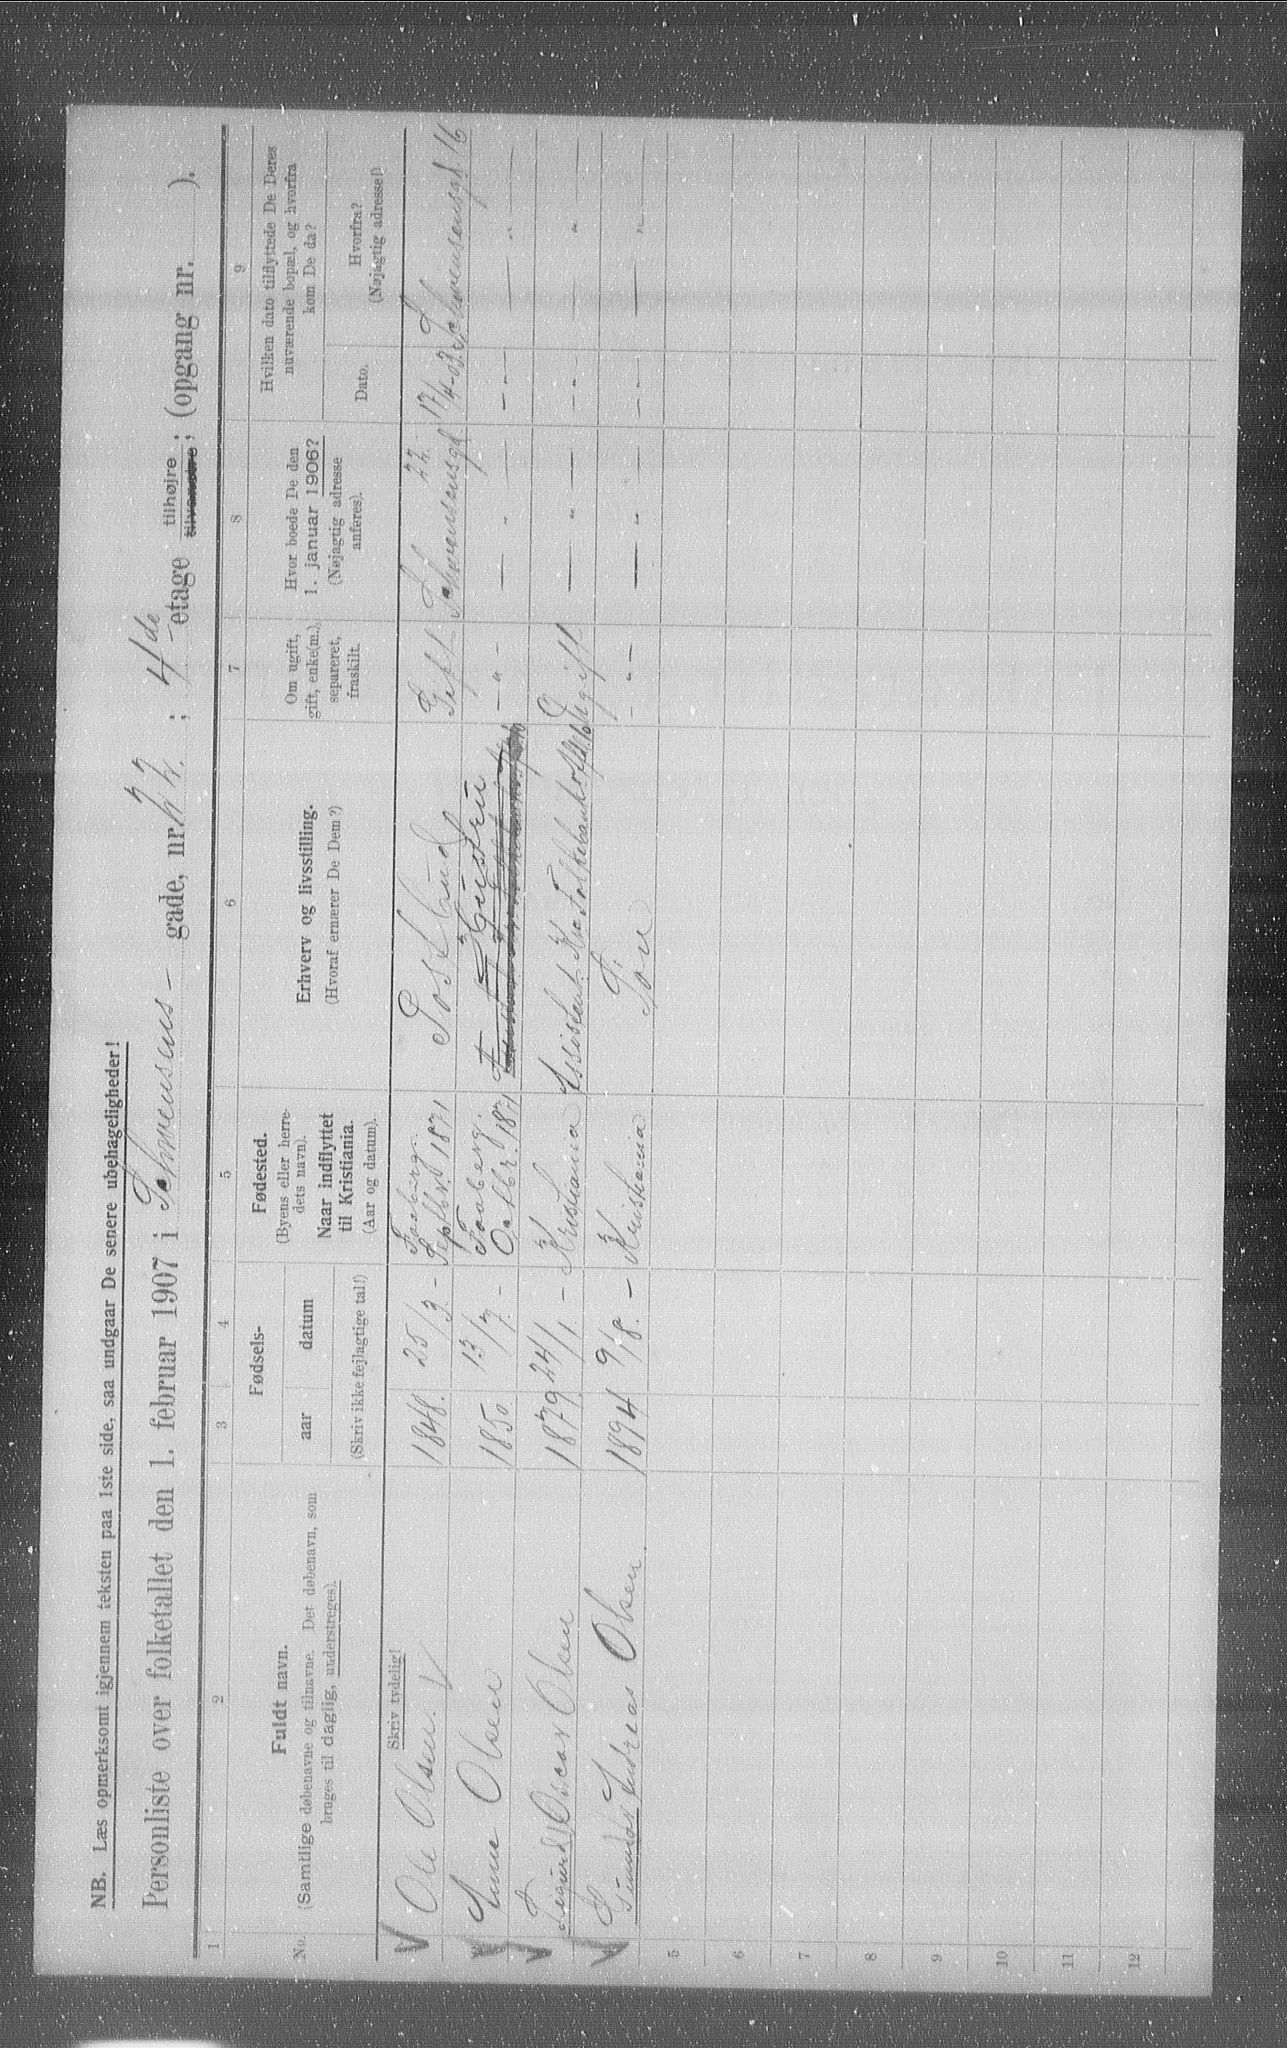 NB. Læs opmerksomt igjennem teksten paa 1ste side, saa undgaar De senere ubehageligheder!
Personliste over folketallet den 1. februar 1907 i Schwensens- gade, nr. 22. ; 4de etage tilhøjre tilvenstre; (opgang nr. ).
1 2 3 4 5 6 7 8 9
No.
Fuldt navn.
(Samtlige døbenavne og tilnavne. Det døbenavn, som
bruges til daglig, understreges).
Fødsels-
aar datum
(Skriv ikke fejlagtige tal!)
Fødested.
(Byens eller herre-
dets navn).
Naar indflyttet
til Kristiania.
(Aar og datum).
Erhverv og livsstilling.
(Hvoraf ernærer De Dem?)
Om ugift,
gift, enke(m.),
separeret,
fraskilt.
Hvor boede De den
1. januar 1906?
(Nøjagtig adresse
anføres).
Hvilken dato tilflyttede De Deres
nuværende bopæl, og hvorfra
kom De da?
Dato.
Hvorfra?
(Nøjagtig adresse!)
Skriv tydelig!
Ole Olsen. 1848. 25/3 - Faaberg. Septbr. 1871 Postbud Gift Schwensensgd 22. 17/4-02. Schwensensgd 16
Anne Olsen 1850 13/7. - Faaberg. Octbr. 1871 Hustru - " - — " — - - — " —
Sigurd Oscar Olsen 1879 24/1 - Kristiania Assistent. Kra Folkebank Ugift — " — - - — " —
Andreas Olsen. 1894 9/8. - Kristiania Søn - " - — " — - - — " —
5
6
7
8
9
10
11
12